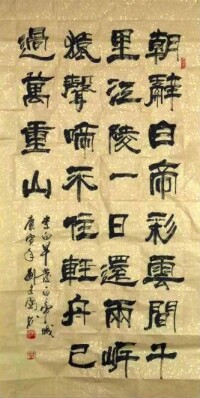 朝辭白帝彩雲間千
里江陵一日還兩岸
猿聲啼不住輕舟已
過萬重山
李白早發白帝城
庚寅年劉